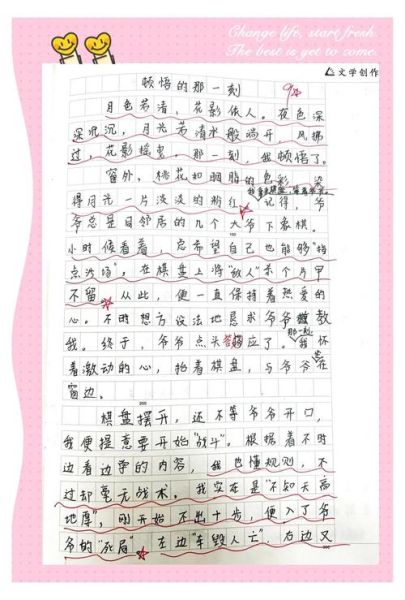 Change life, start fresh.
The best is yet to come.
文学创作
顿悟的那一刻
月色若清，花影依人。夜色深
深沉沉，月光若清水般淌开，风拂
过，花影摇曳。那一刻，我顿悟了。
窗外，桃花如胭脂的色彩，染
得月光一片淡淡的粉红。记得，爷
爷总是同邻居的几个大爷下象棋。
小时候看着，总希望自己也能够“指
点沙场”，在棋盘上将“敌人”杀个片甲
不留。从此，便一直保持着热爱的
心。不时想方设法地恳求爷爷教
我。终于，爷爷点头答应了。那一刻，我怀
着激动的心，抬着棋盘，与爷爷坐在
窗边。
200
棋盘摆开，还不等爷爷开口，
我便提意要开始“战斗”。根据着不时
边看边学的内容，我也懂规则，不
过却毫无战术。我实在是“不知天高
地厚”，刚开始不出十步，便入了爷
爷的“死局”。左边“车毁人亡”，右边又
300